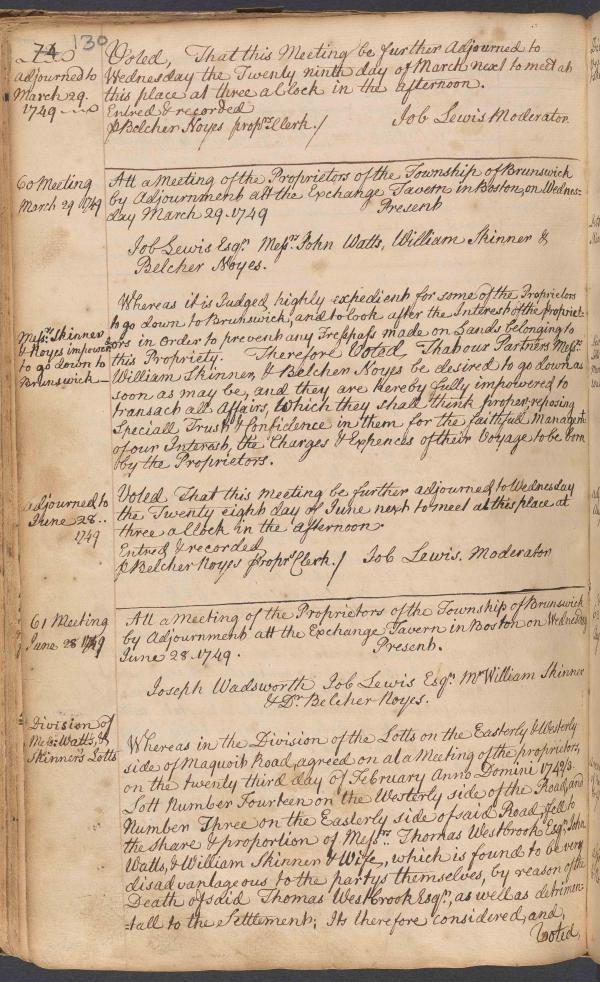 74 130
adjourned to
March 29.
1749
Voted, That this Meeting be further Adjourned to
Wednesday the Twenty ninth day of March next to meet at
this place at three a Clock in the afternoon.
Entred & recorded
p Belcher Noyes prop.rs Clerk./ Job Lewis Moderator
60 Meeting
March 29 1749
Att a Meeting of the Proprietors of the Township of Brunswick
by Adjournment att the Exchange Tavern in Boston, on Wednes=
day March 29. 1749 Present
Job Lewis Esq.r Mess.rs John Watts, William Skinner &
Belcher Noyes.
Mess.rs Skinner
& Noyes impower'd
to go down to
Brunswick
Whereas it is Judged highly expedient for some of the Proprietors
to go down to Brunswick, and to look after the Interest of the propriet=
ors in Order to prevent any Tresspass made on Lands belonging to
this Propriety. Therefore Voted, That our Partners Mess.rs
William Skinner, & Belcher Noyes be desired to go down as
soon as may be, and they are hereby fully impowered to
transact all Affairs, Which they shall think proper, reposing
Speciall Trust & Confidence in them for the faithfull Managem.t
of our Interest, the Charges & Expences of their Voyage to be born
by the Proprietors.
adjourned to
June 28..
1749
Voted That this meeting be further adjourned to Wednesday
the Twenty eighth day of June next to meet at this place at
three a Clock in the afternoon.
Entred & recorded
p Belcher Noyes prop.rs Clerk./ Job Lewis. Moderator
61 Meeting
June 28 1749
Att a Meeting of the Proprietors of the Township of Brunswick
by Adjournment att the Exchange Tavern in Boston on Wednesday
June 28. 1749. Present.
Joseph Wadsworth Job Lewis Esq.rs M.r William Skinner
& D.r Belcher Noyes.
Division of
Mess.rs Watts, &
Skinners Lotts
Whereas in the Division of the Lotts on the Easterly & Westerly
side of Maquoit Road, agreed on at a Meeting of the proprietors,
on the twenty third day of February Anno Domini 1742/3.
Lott Number Fourteen on the Westerly side of the Road, and
Number Three on the Easterly side of said Road, fell to
the share & proportion of Mess.rs Thomas Westbrook Esq.r, John
Watts, & William Skinner & Wife, which is found to be very
disadvantageous to the partys themselves, by reason of the
Death of said Thomas Westbrook Esq.r, as well as detrimen=
=tall to the Settlement; Its therefore considered, and,
Voted,